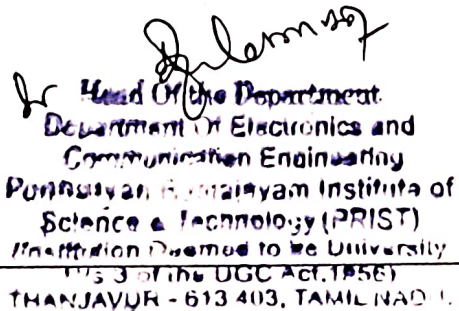 Head Of the Department
Department Of Electronics and
Communication Engineering
Ponnaiyan Ramajayam Institute of
Science & Technology (PRIST)
(Institution Deemed to be University
U/s 3 of the UGC Act, 1956)
THANJAVUR - 613 403, TAMIL NADU.